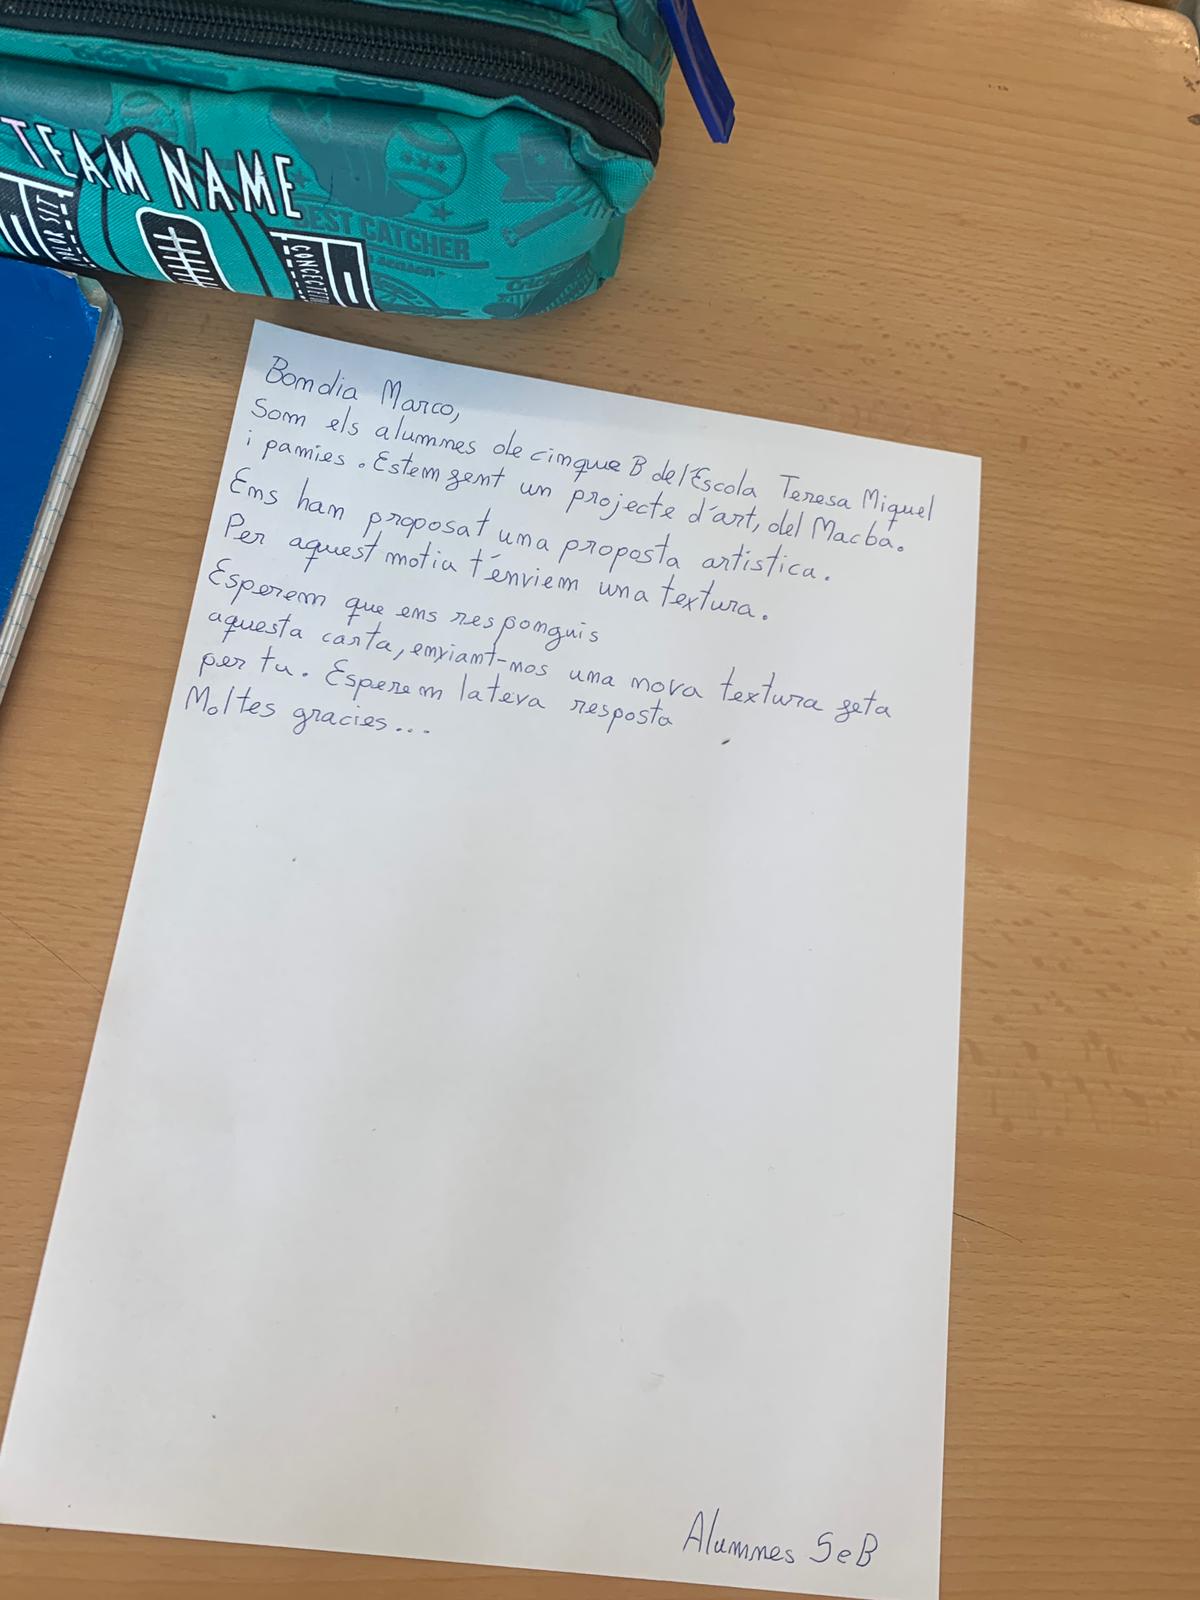 TEAM NAME
BEST CATCHER
Bon dia Marco,
Som els alumnes de cinque B de l'Escola Teresa Miquel
i pamies. Estem fent un projecte d'art, del Macba.
Ens han proposat una proposta artistica.
Per aquest motiu t'enviem una textura.
Esperem que ens responguis
aquesta carta, enviant-nos una nova textura feta
per tu. Esperem la teva resposta
Moltes gracies...
Alumnes 5e B